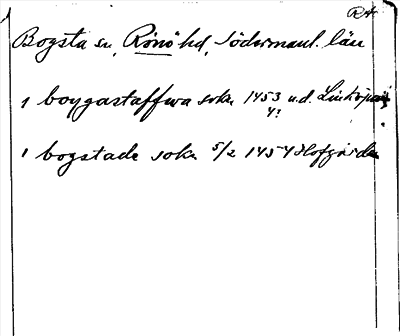 RA
Bogsta sn, Rönö hd, Södermanl. län
1 boygastaffwa sokn 1453 u.d. Linköping
4?
1 bogstade sokn 5/2 1454 Hofgården